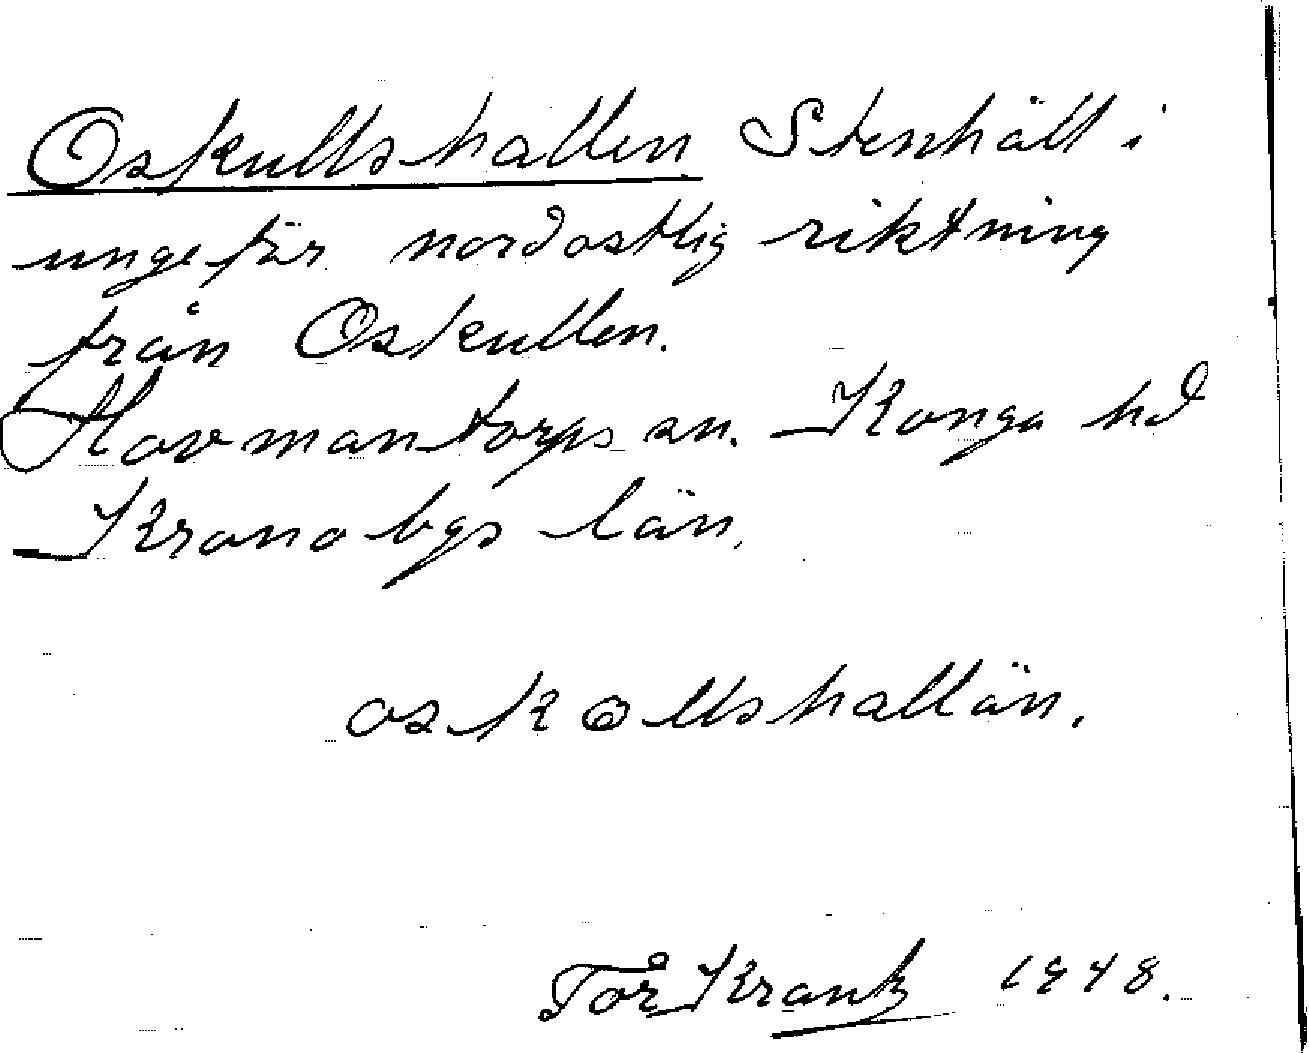 Oskullshallen Stenhäll i
ungefär nordostlig riktning
från Oskullen.
Hovmantorps sn. Konga hd
Kronobgs län.
oskollshallän.
Tor Krantz 1948.